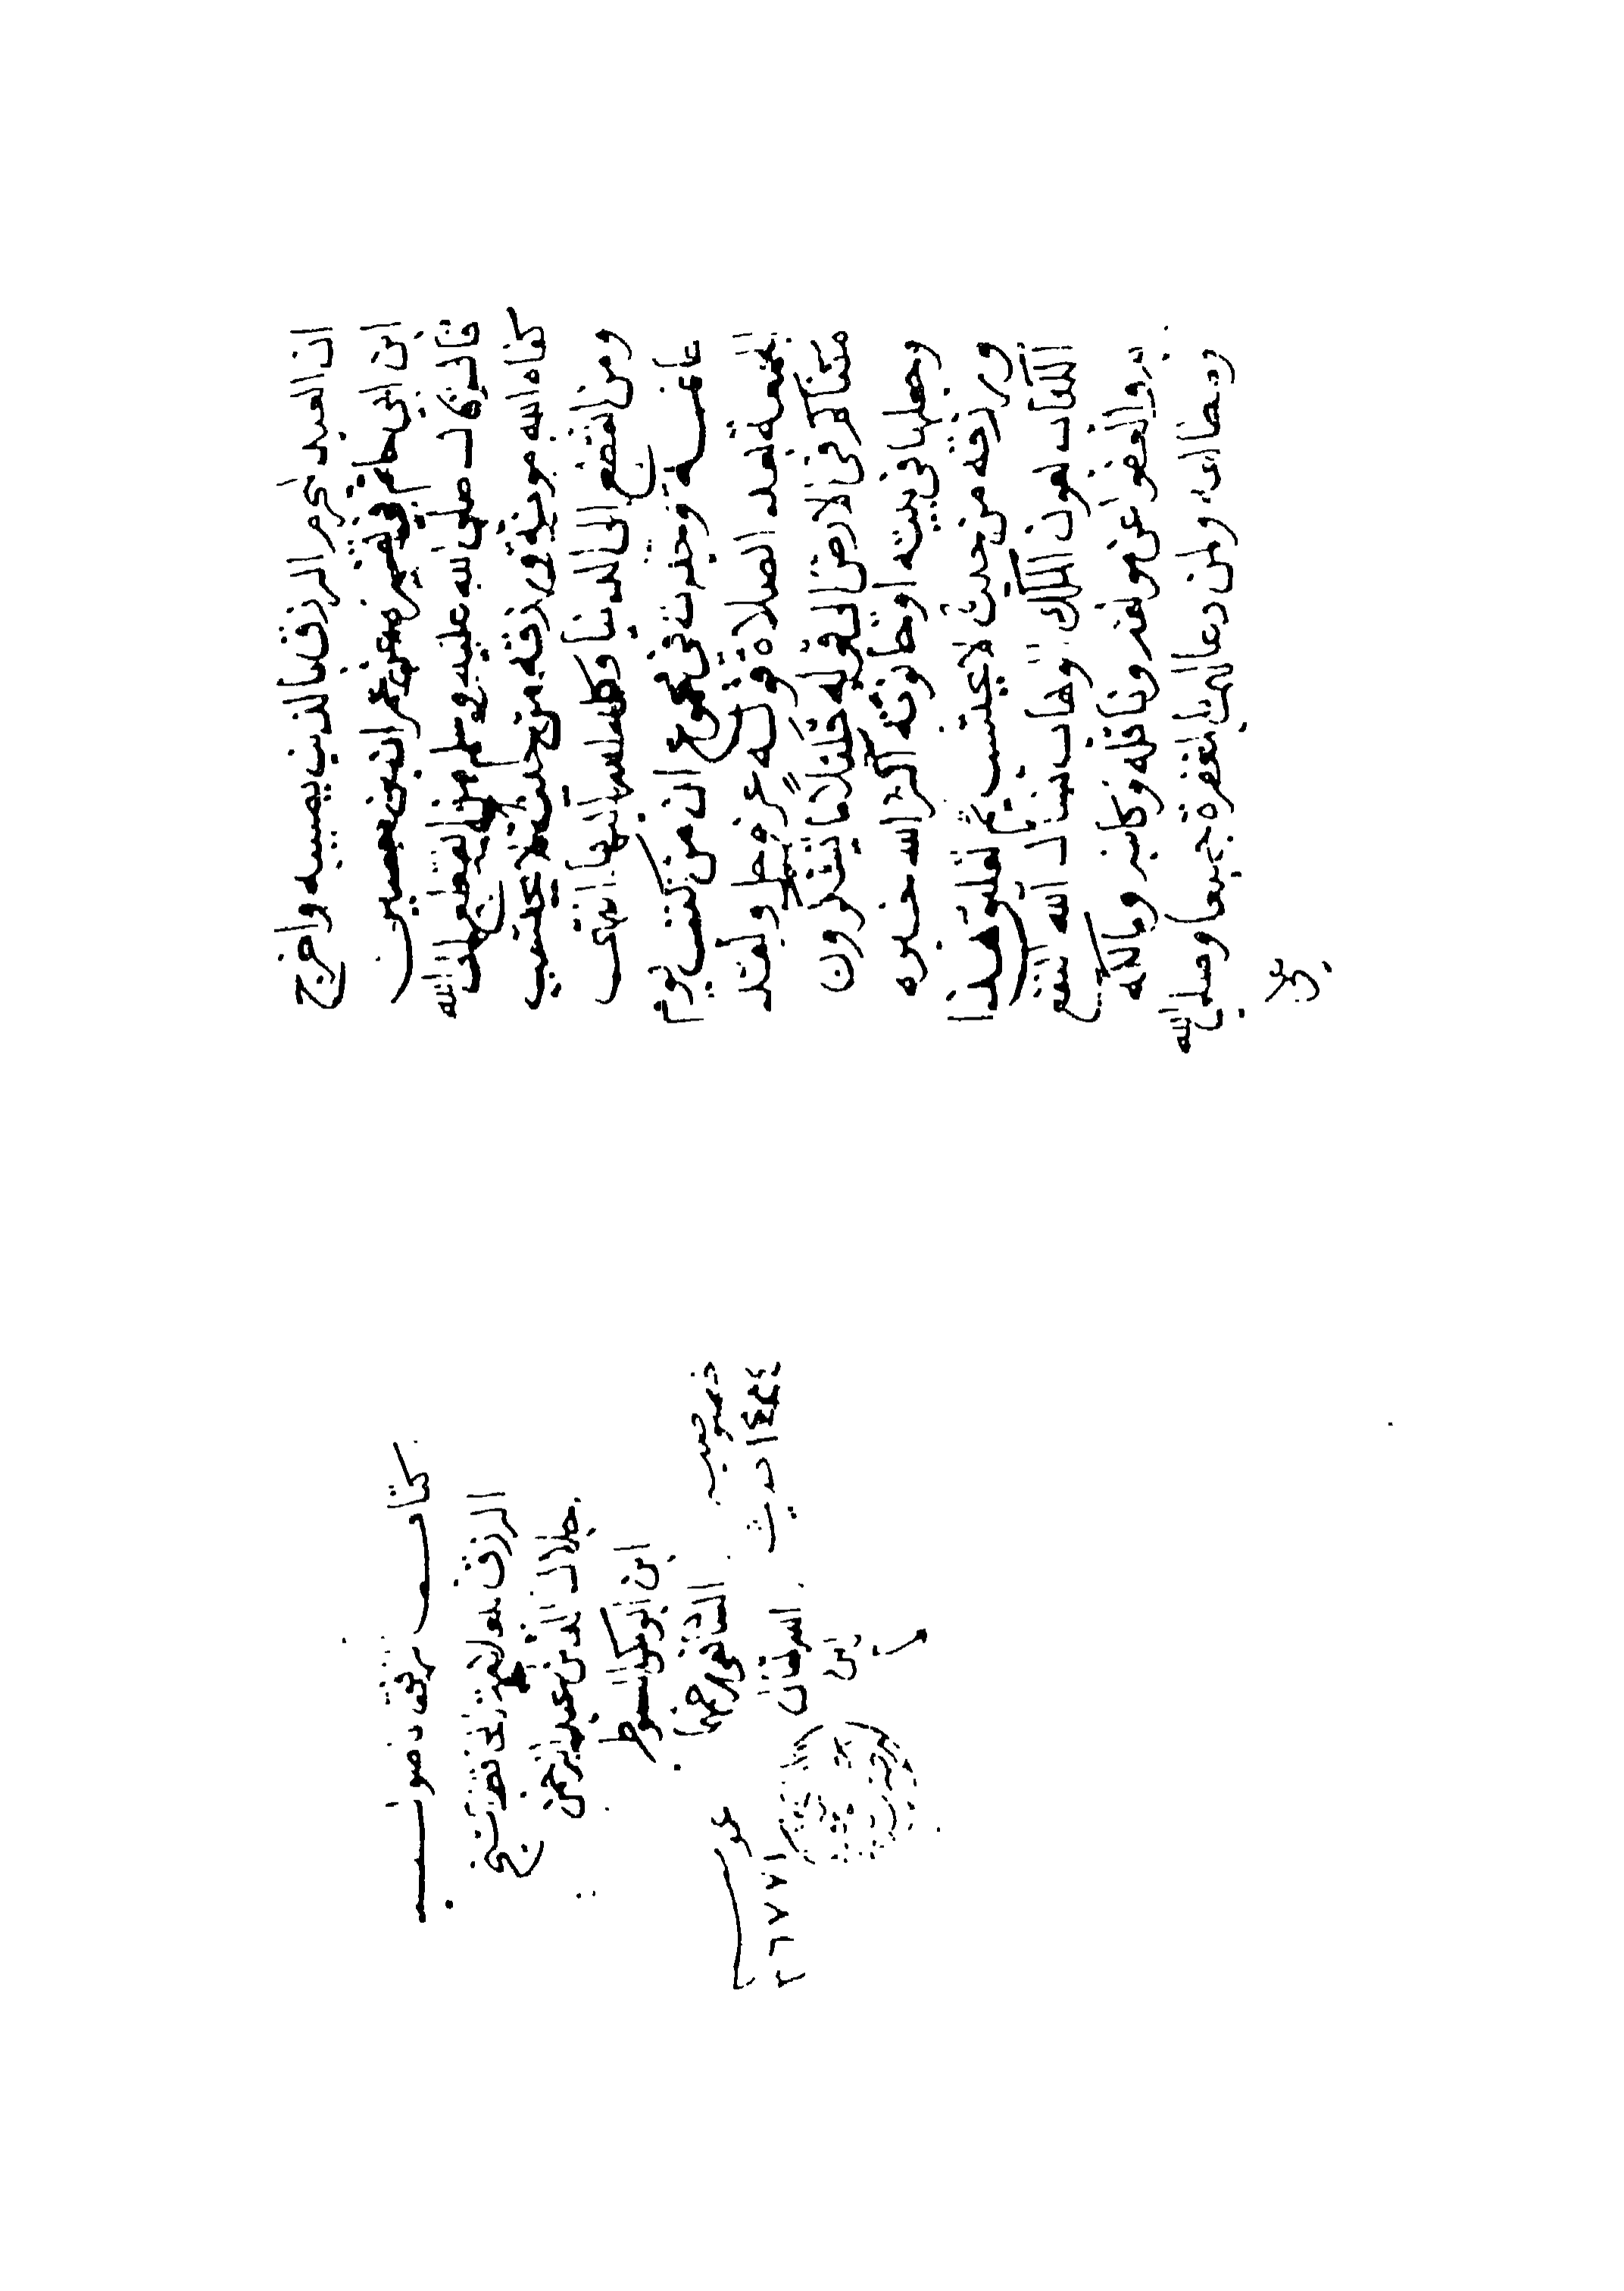 ان العبد يحرم الرزق بالذنب يصيبه واخرج
ابن ابي حاتم في تفسيره عن عمران بن حصين
قال قال صلى الله عليه وسلم من انقطع الى الله
كفاه الله مونته ورزقه من حيث لا يحتسب
ومن انقطع الى الدنيا وكله الله اليها انتهى
وجدت في مجموع ان من كتب يوم
الجمعة بعد الصلاة قوله عز وجل ولقد
مكناكم في الارض الى قوله قليلا ما تشكرون
وجعلها في بيته او حانوته اكثر الله خيره
ورزقه من حيث لا يحتسب تم نقلت هذا
الكتاب بعون الملك الوهاب نسال الله النفع
به والعفو عن مولفه وناقله وكاتبه ومالكه
ولمن دعا لهم بالمغفرة جميعا وصلى الله
كتاب
الرزق
جلال الدين عبد الرحمن
ابن ابوبكر السيوطي
الشافعي
حديث
ابن
٢٦٧٧١